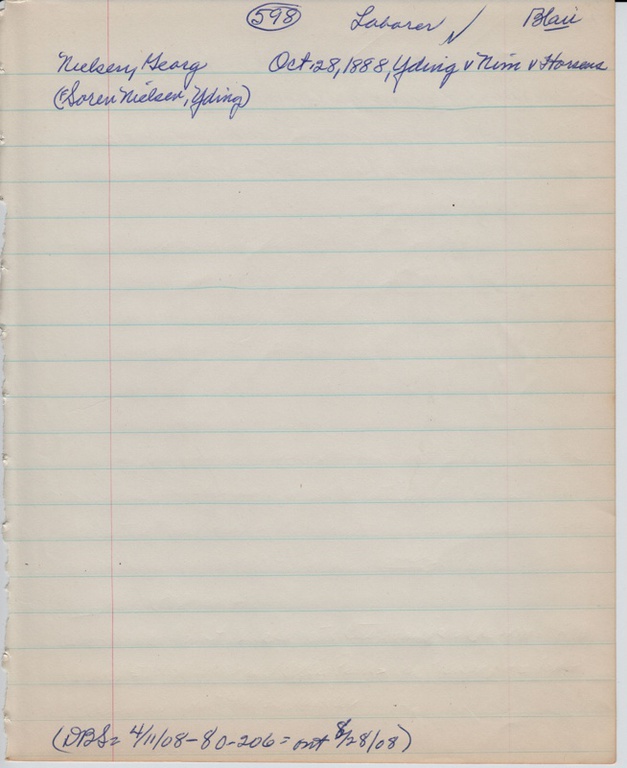 598 Laborer ✓ Blair
Nielsen, Georg Oct. 28, 1888, Yding v Nim v Horsens
(Soren Nielsen, Yding)
(DBS= 4/11/08-80-206= out 8/28/08)